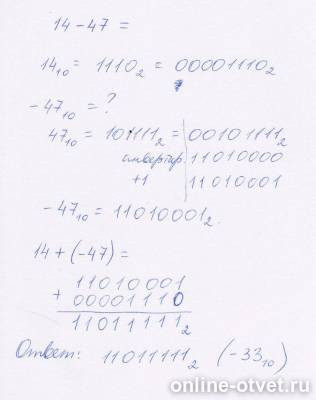 14 - 47 =
14₁₀ = 1110₂ = 00001110₂
-47₁₀ = ?
47₁₀ = 101111₂ = 00101111₂
инвертир. 11010000
+1 11010001
-47₁₀ = 11010001₂.
14 + (-47) =
11010001
+ 00001110
11011111₂
Ответ: 11011111₂ (-33₁₀)
online-otvet.ru